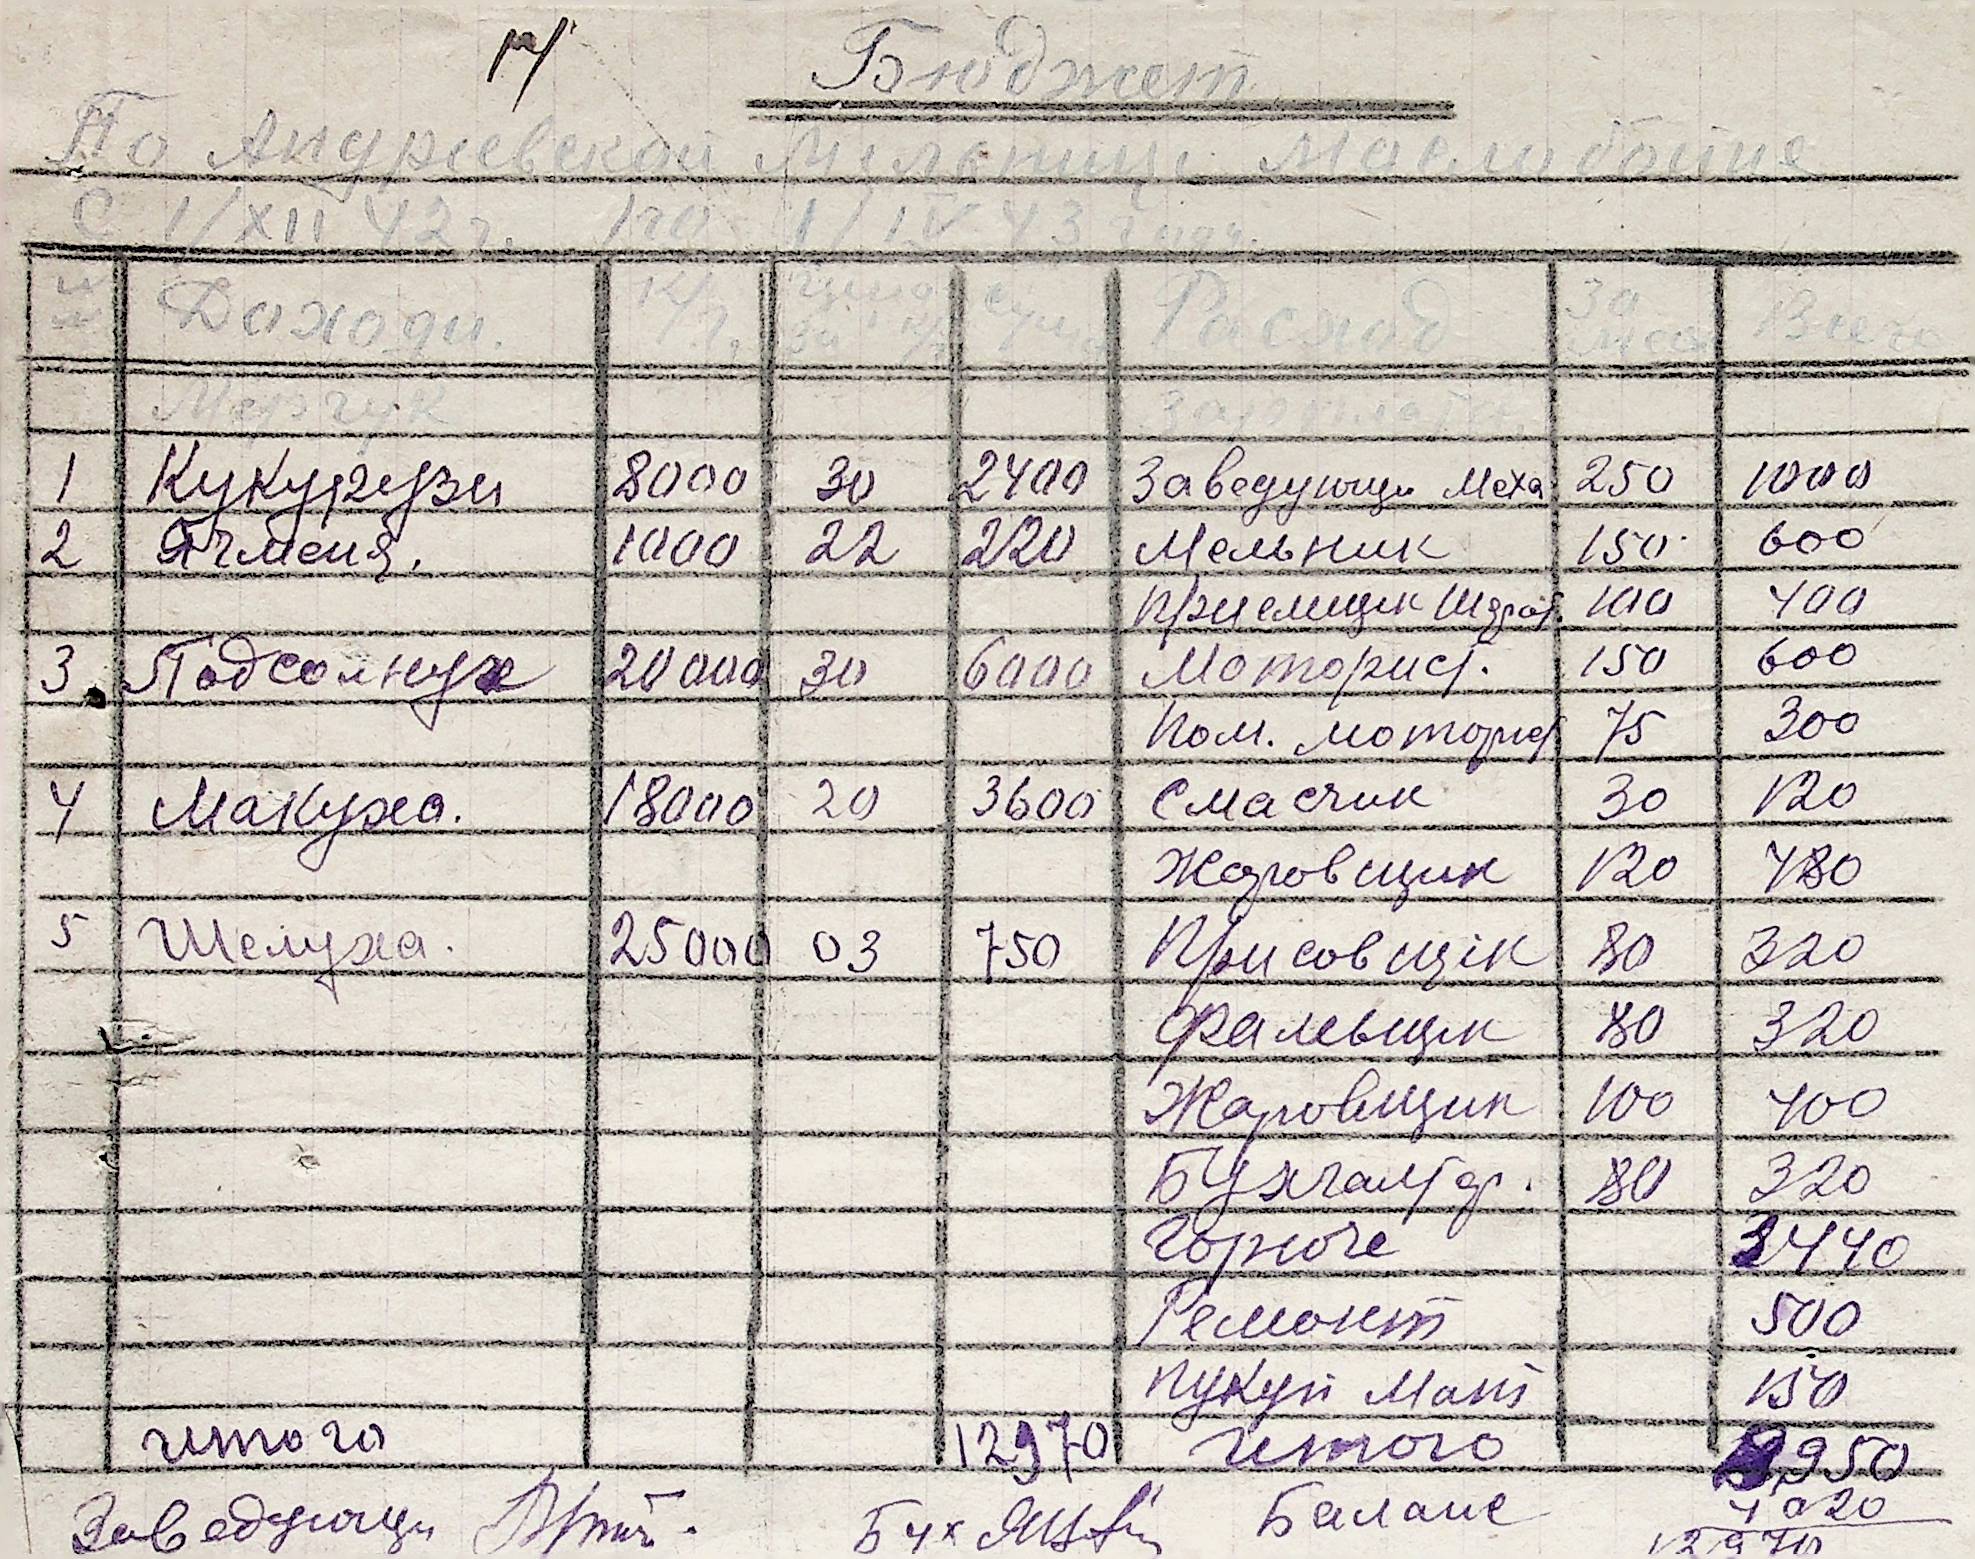 Бюджет
По Андреевской Мельници Маслобойне
С 1/XII 42 г. по 1/IV 43 года
Доходи. К/г. Цина за к/г Сума Расход За мес Всего
Мерчук Зарплата
1 Кукурузи 8000 30 2400 Заведующи Меха 250 1000
2 Ячменя. 1000 22 220 Мельник 150 600
Приемщик 100 400
3 Подсолнух 20000 30 6000 Моторист. 150 600
Пом. моторист 75 300
4 Макуха. 18000 20 3600 Смасчик 30 120
Жаровщик 120 480
5 Шелуха. 25000 03 750 Присовщик 80 320
Фальвщик 80 320
Жаровщик 100 400
Бухгалтер. 80 320
Горюче 3440
Ремонт 500
Мат 150
итого 12970 итого 8950
Заведующи Бух Баланс 4020
12970